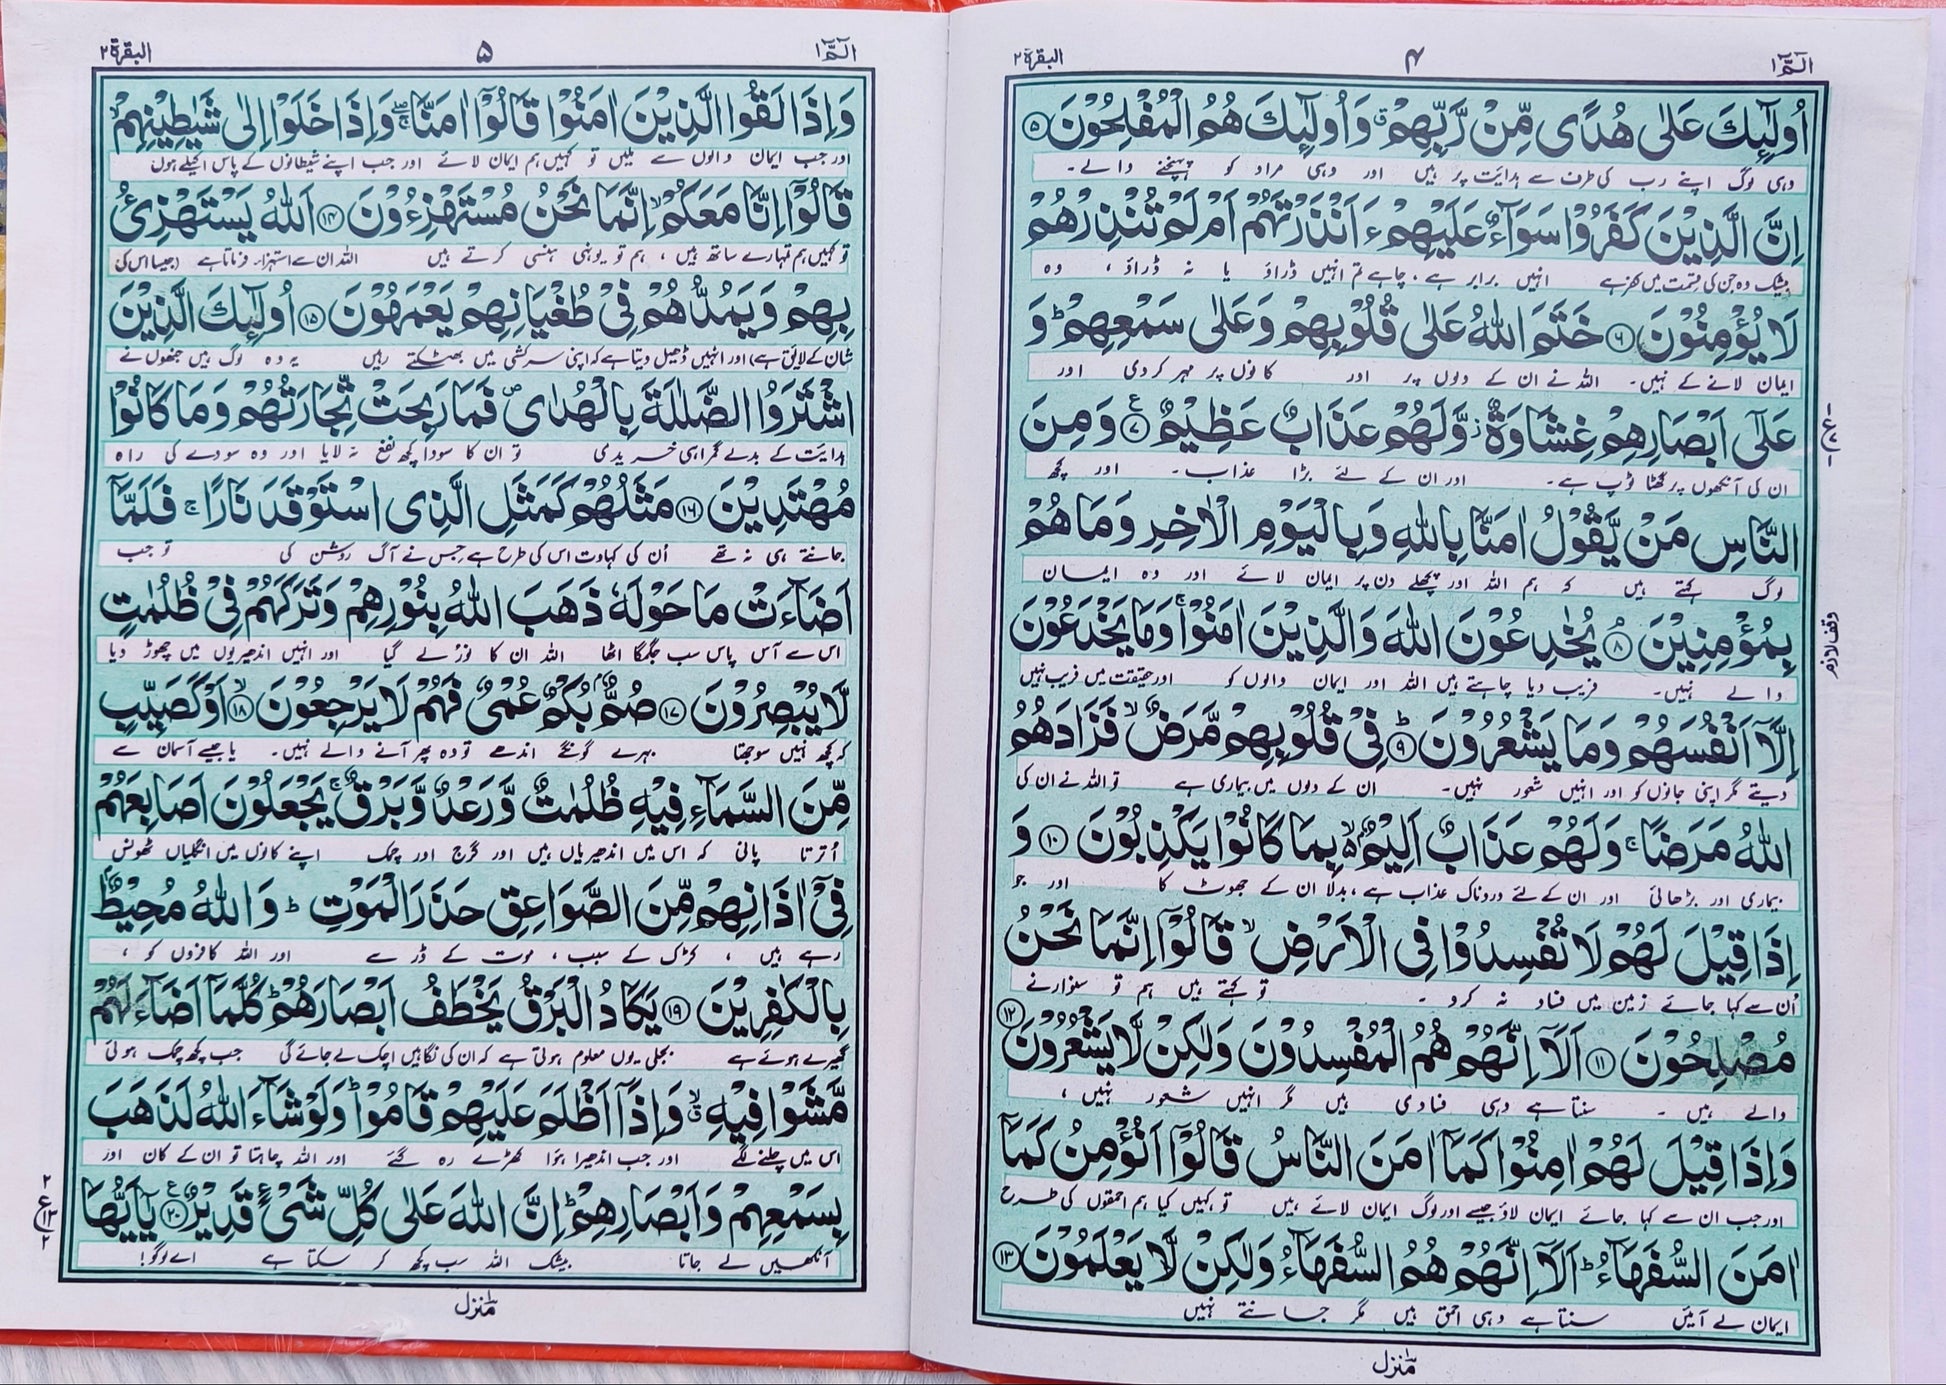 الٓمّٓ ١
۴
البقرة ٢
اُولٰٓئِكَ عَلٰى هُدًى مِّنْ رَّبِّهِمْ ۗ وَاُولٰٓئِكَ هُمُ الْمُفْلِحُوْنَ ۝۵
وہی لوگ اپنے رب کی طرف سے ہدایت پر ہیں اور وہی مراد کو پہنچنے والے۔
اِنَّ الَّذِيْنَ كَفَرُوْا سَوَآءٌ عَلَيْهِمْ ءَاَنْذَرْتَهُمْ اَمْ لَمْ تُنْذِرْهُمْ
بیشک وہ جن کی قسمت میں کفر ہے انہیں برابر ہے، چاہے تم انہیں ڈراؤ یا نہ ڈراؤ، وہ
لَا يُؤْمِنُوْنَ ۝۶ خَتَمَ اللّٰهُ عَلٰى قُلُوْبِهِمْ وَعَلٰى سَمْعِهِمْ ؕ وَ
ایمان لانے کے نہیں۔ اللہ نے ان کے دلوں پر اور کانوں پر مہر کردی اور
عَلٰٓى اَبْصَارِهِمْ غِشَاوَةٌ ز وَّلَهُمْ عَذَابٌ عَظِيْمٌ ۝۷ ع وَمِنَ
ان کی آنکھوں پر گھٹا ٹوپ ہے۔ اور ان کے لئے بڑا عذاب۔ اور کچھ
النَّاسِ مَنْ يَّقُوْلُ اٰمَنَّا بِاللّٰهِ وَبِالْيَوْمِ الْاٰخِرِ وَمَا هُمْ
لوگ کہتے ہیں کہ ہم اللہ اور پچھلے دن پر ایمان لائے اور وہ ایمان
بِمُؤْمِنِيْنَ ۝۸ م يُخٰدِعُوْنَ اللّٰهَ وَالَّذِيْنَ اٰمَنُوْا ۚ وَمَا يَخْدَعُوْنَ
والے نہیں۔ فریب دیا چاہتے ہیں اللہ اور ایمان والوں کو اور حقیقت میں فریب نہیں
وقف لازم
اِلَّاۤ اَنْفُسَهُمْ وَمَا يَشْعُرُوْنَ ۝۹ ؕ فِيْ قُلُوْبِهِمْ مَّرَضٌ ۙ فَزَادَهُمُ
دیتے مگر اپنی جانوں کو اور انہیں شعور نہیں۔ ان کے دلوں میں بیماری ہے تو اللہ نے ان کی
اللّٰهُ مَرَضًا ۚ وَلَهُمْ عَذَابٌ اَلِيْمٌۢ ۙ بِمَا كَانُوْا يَكْذِبُوْنَ ۝۱۰ وَ
بیماری اور بڑھائی اور ان کے لئے دردناک عذاب ہے، بدلا ان کے جھوٹ کا اور جو
اِذَا قِيْلَ لَهُمْ لَا تُفْسِدُوْا فِى الْاَرْضِ ۙ قَالُوْٓا اِنَّمَا نَحْنُ
اُن سے کہا جائے زمین میں فساد نہ کرو۔ تو کہتے ہیں ہم تو سنوارنے
مُصْلِحُوْنَ ۝۱۱ اَلَآ اِنَّهُمْ هُمُ الْمُفْسِدُوْنَ وَلٰكِنْ لَّا يَشْعُرُوْنَ ۝۱۲
والے ہیں۔ سنتا ہے وہی فسادی ہیں مگر انہیں شعور نہیں،
وَاِذَا قِيْلَ لَهُمْ اٰمِنُوْا كَمَآ اٰمَنَ النَّاسُ قَالُوْٓا اَنُؤْمِنُ كَمَآ
اور جب ان سے کہا جائے ایمان لاؤ جیسے اور لوگ ایمان لائے ہیں تو کہیں کیا ہم احمقوں کی طرح
اٰمَنَ السُّفَهَآءُ ؕ اَلَآ اِنَّهُمْ هُمُ السُّفَهَآءُ وَلٰكِنْ لَّا يَعْلَمُوْنَ ۝۱۳
ایمان لے آئیں سنتا ہے وہی احمق ہیں مگر جانتے نہیں
منزل ١
الٓمّٓ ١
۵
البقرة ٢
وَاِذَا لَقُوا الَّذِيْنَ اٰمَنُوْا قَالُوْٓا اٰمَنَّا ۚۖ وَاِذَا خَلَوْا اِلٰى شَيٰطِيْنِهِمْ ۙ
اور جب ایمان والوں سے ملیں تو کہیں ہم ایمان لائے اور جب اپنے شیطانوں کے پاس اکیلے ہوں
قَالُوْٓا اِنَّا مَعَكُمْ ۙ اِنَّمَا نَحْنُ مُسْتَهْزِءُوْنَ ۝۱۴ اَللّٰهُ يَسْتَهْزِئُ
تو کہیں ہم تمہارے ساتھ ہیں، ہم تو یونہی ہنسی کرتے ہیں اللہ ان سے استہزاء فرماتا ہے (جیسا اس کی
بِهِمْ وَيَمُدُّهُمْ فِيْ طُغْيَانِهِمْ يَعْمَهُوْنَ ۝۱۵ اُولٰٓئِكَ الَّذِيْنَ
شان کے لائق ہے) اور انہیں ڈھیل دیتا ہے کہ اپنی سرکشی میں بھٹکتے رہیں یہ وہ لوگ ہیں جنھوں نے
اشْتَرَوُا الضَّلٰلَةَ بِالْهُدٰى ۖ فَمَا رَبِحَتْ تِّجَارَتُهُمْ وَمَا كَانُوْا
ہدایت کے بدلے گمراہی خریدی تو ان کا سودا کچھ نفع نہ لایا اور وہ سودے کی راہ
مُهْتَدِيْنَ ۝۱۶ مَثَلُهُمْ كَمَثَلِ الَّذِى اسْتَوْقَدَ نَارًا ۚ فَلَمَّآ
جانتے ہی نہ تھے اُن کی کہاوت اس کی طرح ہے جس نے آگ روشن کی تو جب
اَضَآءَتْ مَا حَوْلَهٗ ذَهَبَ اللّٰهُ بِنُوْرِهِمْ وَتَرَكَهُمْ فِيْ ظُلُمٰتٍ
اس سے آس پاس سب جگمگا اٹھا اللہ ان کا نور لے گیا اور انہیں اندھیریوں میں چھوڑ دیا
لَّا يُبْصِرُوْنَ ۝۱۷ صُمٌّۢ بُكْمٌ عُمْىٌ فَهُمْ لَا يَرْجِعُوْنَ ۝۱۸ ۙ اَوْ كَصَيِّبٍ
کہ کچھ نہیں سوجھتا بہرے گونگے اندھے تو وہ پھر آنے والے نہیں۔ یا جیسے آسمان سے
مِّنَ السَّمَآءِ فِيْهِ ظُلُمٰتٌ وَّرَعْدٌ وَّبَرْقٌ ۚ يَجْعَلُوْنَ اَصَابِعَهُمْ
اُترتا پانی کہ اس میں اندھیریاں ہیں اور گرج اور چمک اپنے کانوں میں انگلیاں ٹھونس
فِيْٓ اٰذَانِهِمْ مِّنَ الصَّوَاعِقِ حَذَرَ الْمَوْتِ ؕ وَاللّٰهُ مُحِيْطٌۢ
رہے ہیں، کڑک کے سبب، موت کے ڈر سے اور اللہ کافروں کو،
بِالْكٰفِرِيْنَ ۝۱۹ يَكَادُ الْبَرْقُ يَخْطَفُ اَبْصَارَهُمْ ؕ كُلَّمَآ اَضَآءَ لَهُمْ
گھیرے ہوئے ہے بجلی یوں معلوم ہوتی ہے کہ ان کی نگاہیں اچک لے جائے گی جب کچھ چمک ہوئی
مَّشَوْا فِيْهِ ۙۗ وَاِذَآ اَظْلَمَ عَلَيْهِمْ قَامُوْا ؕ وَلَوْ شَآءَ اللّٰهُ لَذَهَبَ
اس میں چلنے لگے اور جب اندھیرا ہوا کھڑے رہ گئے اور اللہ چاہتا تو ان کے کان اور
بِسَمْعِهِمْ وَاَبْصَارِهِمْ ؕ اِنَّ اللّٰهَ عَلٰى كُلِّ شَىْءٍ قَدِيْرٌ ۝۲۰ ع يٰٓاَيُّهَا
آنکھیں لے جاتا بیشک اللہ سب کچھ کر سکتا ہے اے لوگو!
منزل ١